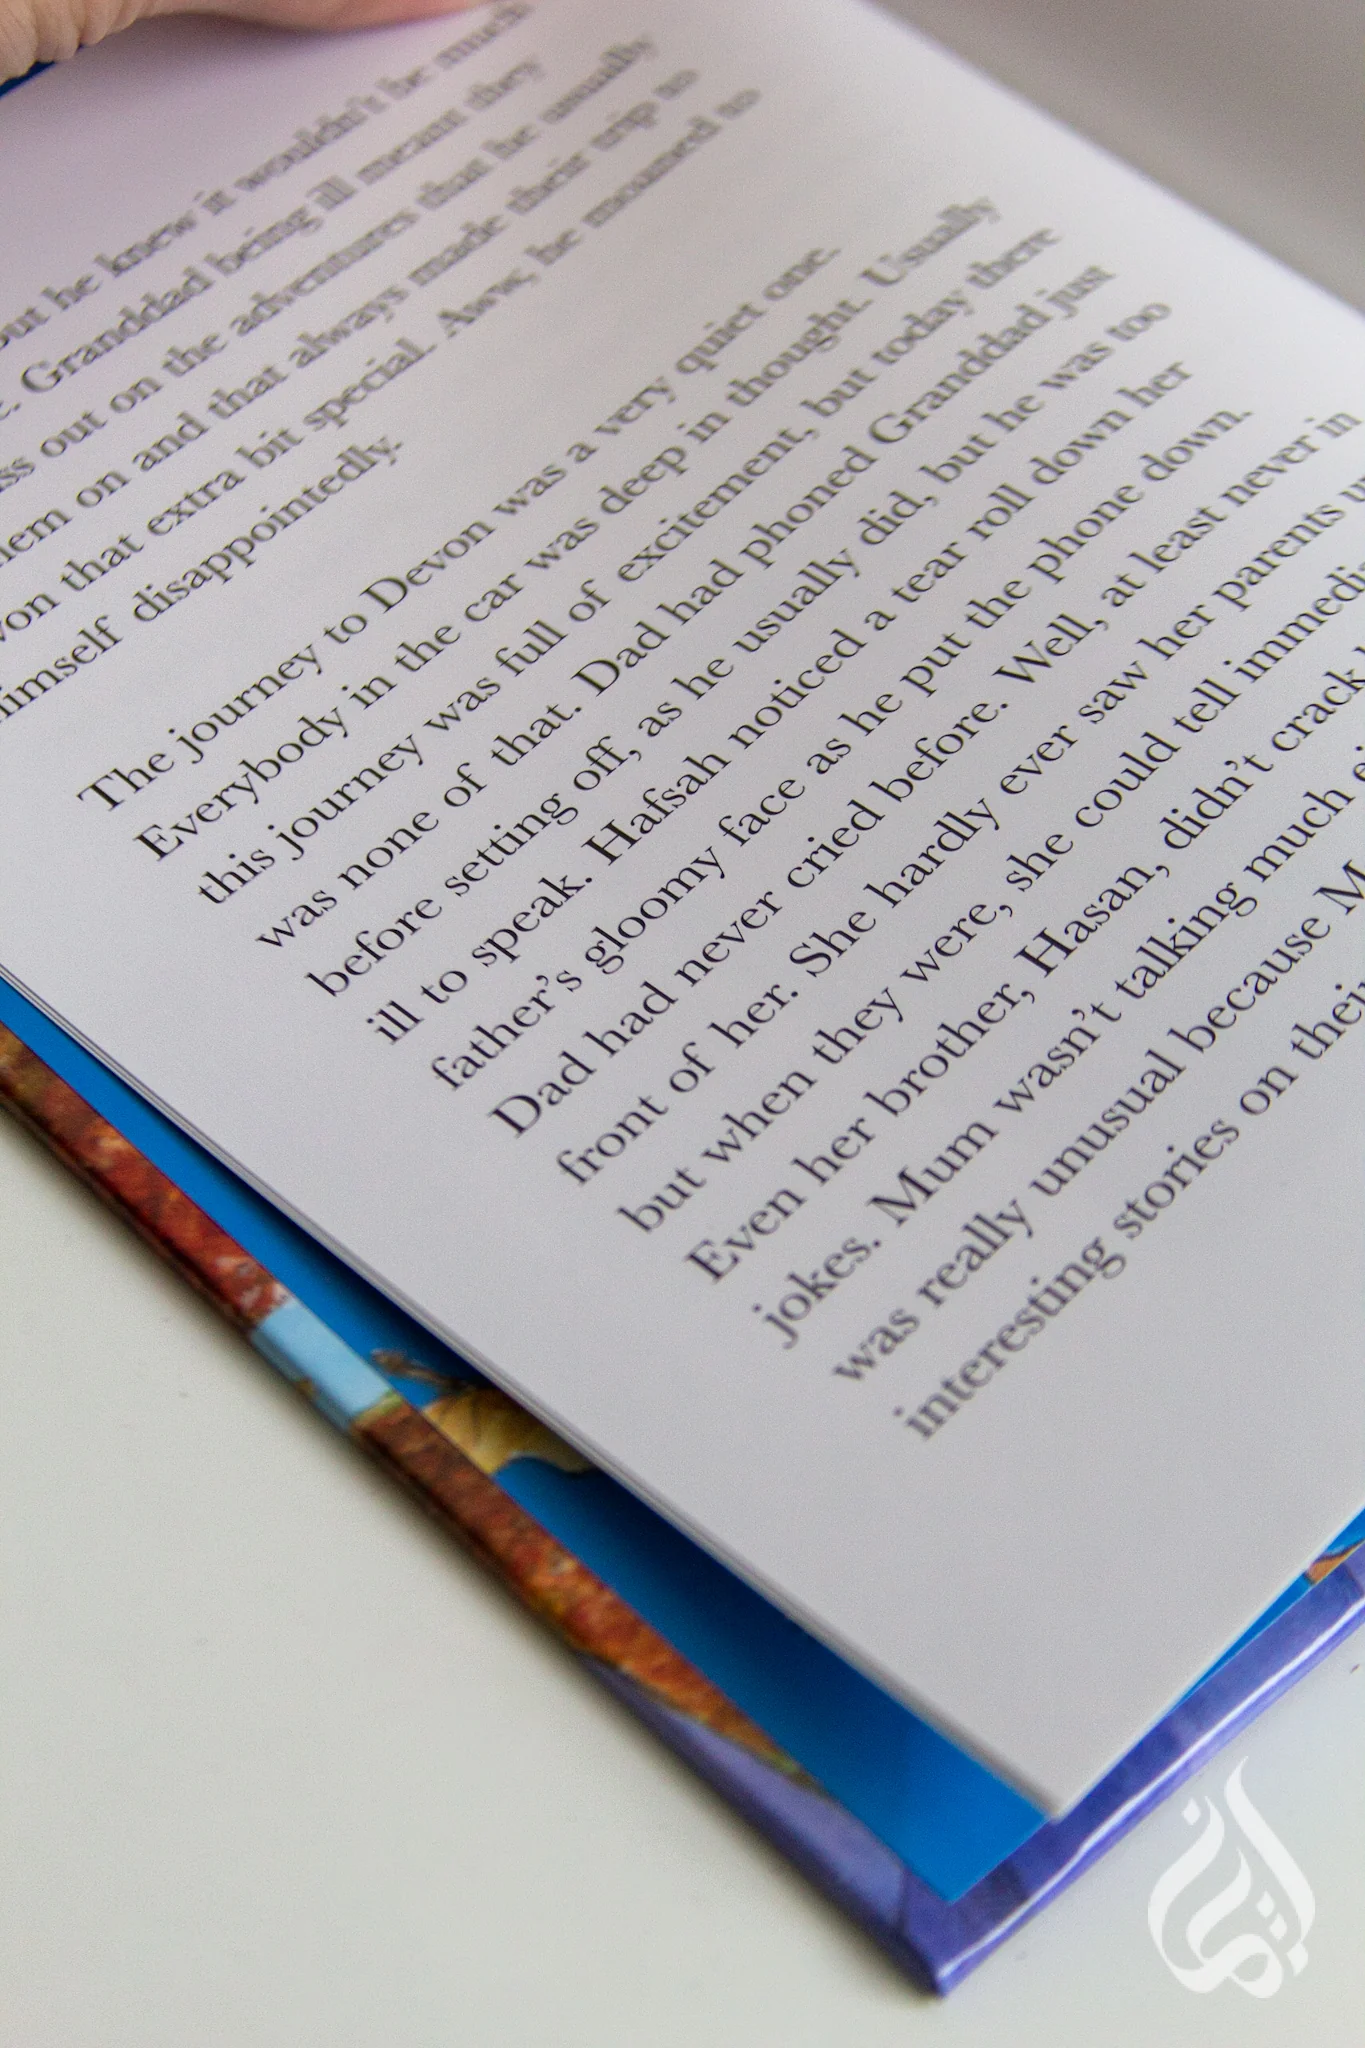 but he knew it wouldn't be much
Granddad being ill meant they
out on the adventures that he usually
on and that always made their trip to
that extra bit special. Aww, he moaned to
himself disappointedly.
The journey to Devon was a very quiet one.
Everybody in the car was deep in thought. Usually
this journey was full of excitement, but today there
was none of that. Dad had phoned Granddad just
before setting off, as he usually did, but he was too
ill to speak. Hafsah noticed a tear roll down her
father's gloomy face as he put the phone down.
Dad had never cried before. Well, at least never in
front of her. She hardly ever saw her parents
but when they were, she could tell
Even her brother, Hasan, didn't crack
jokes. Mum wasn't talking much
was really unusual because
interesting stories on their